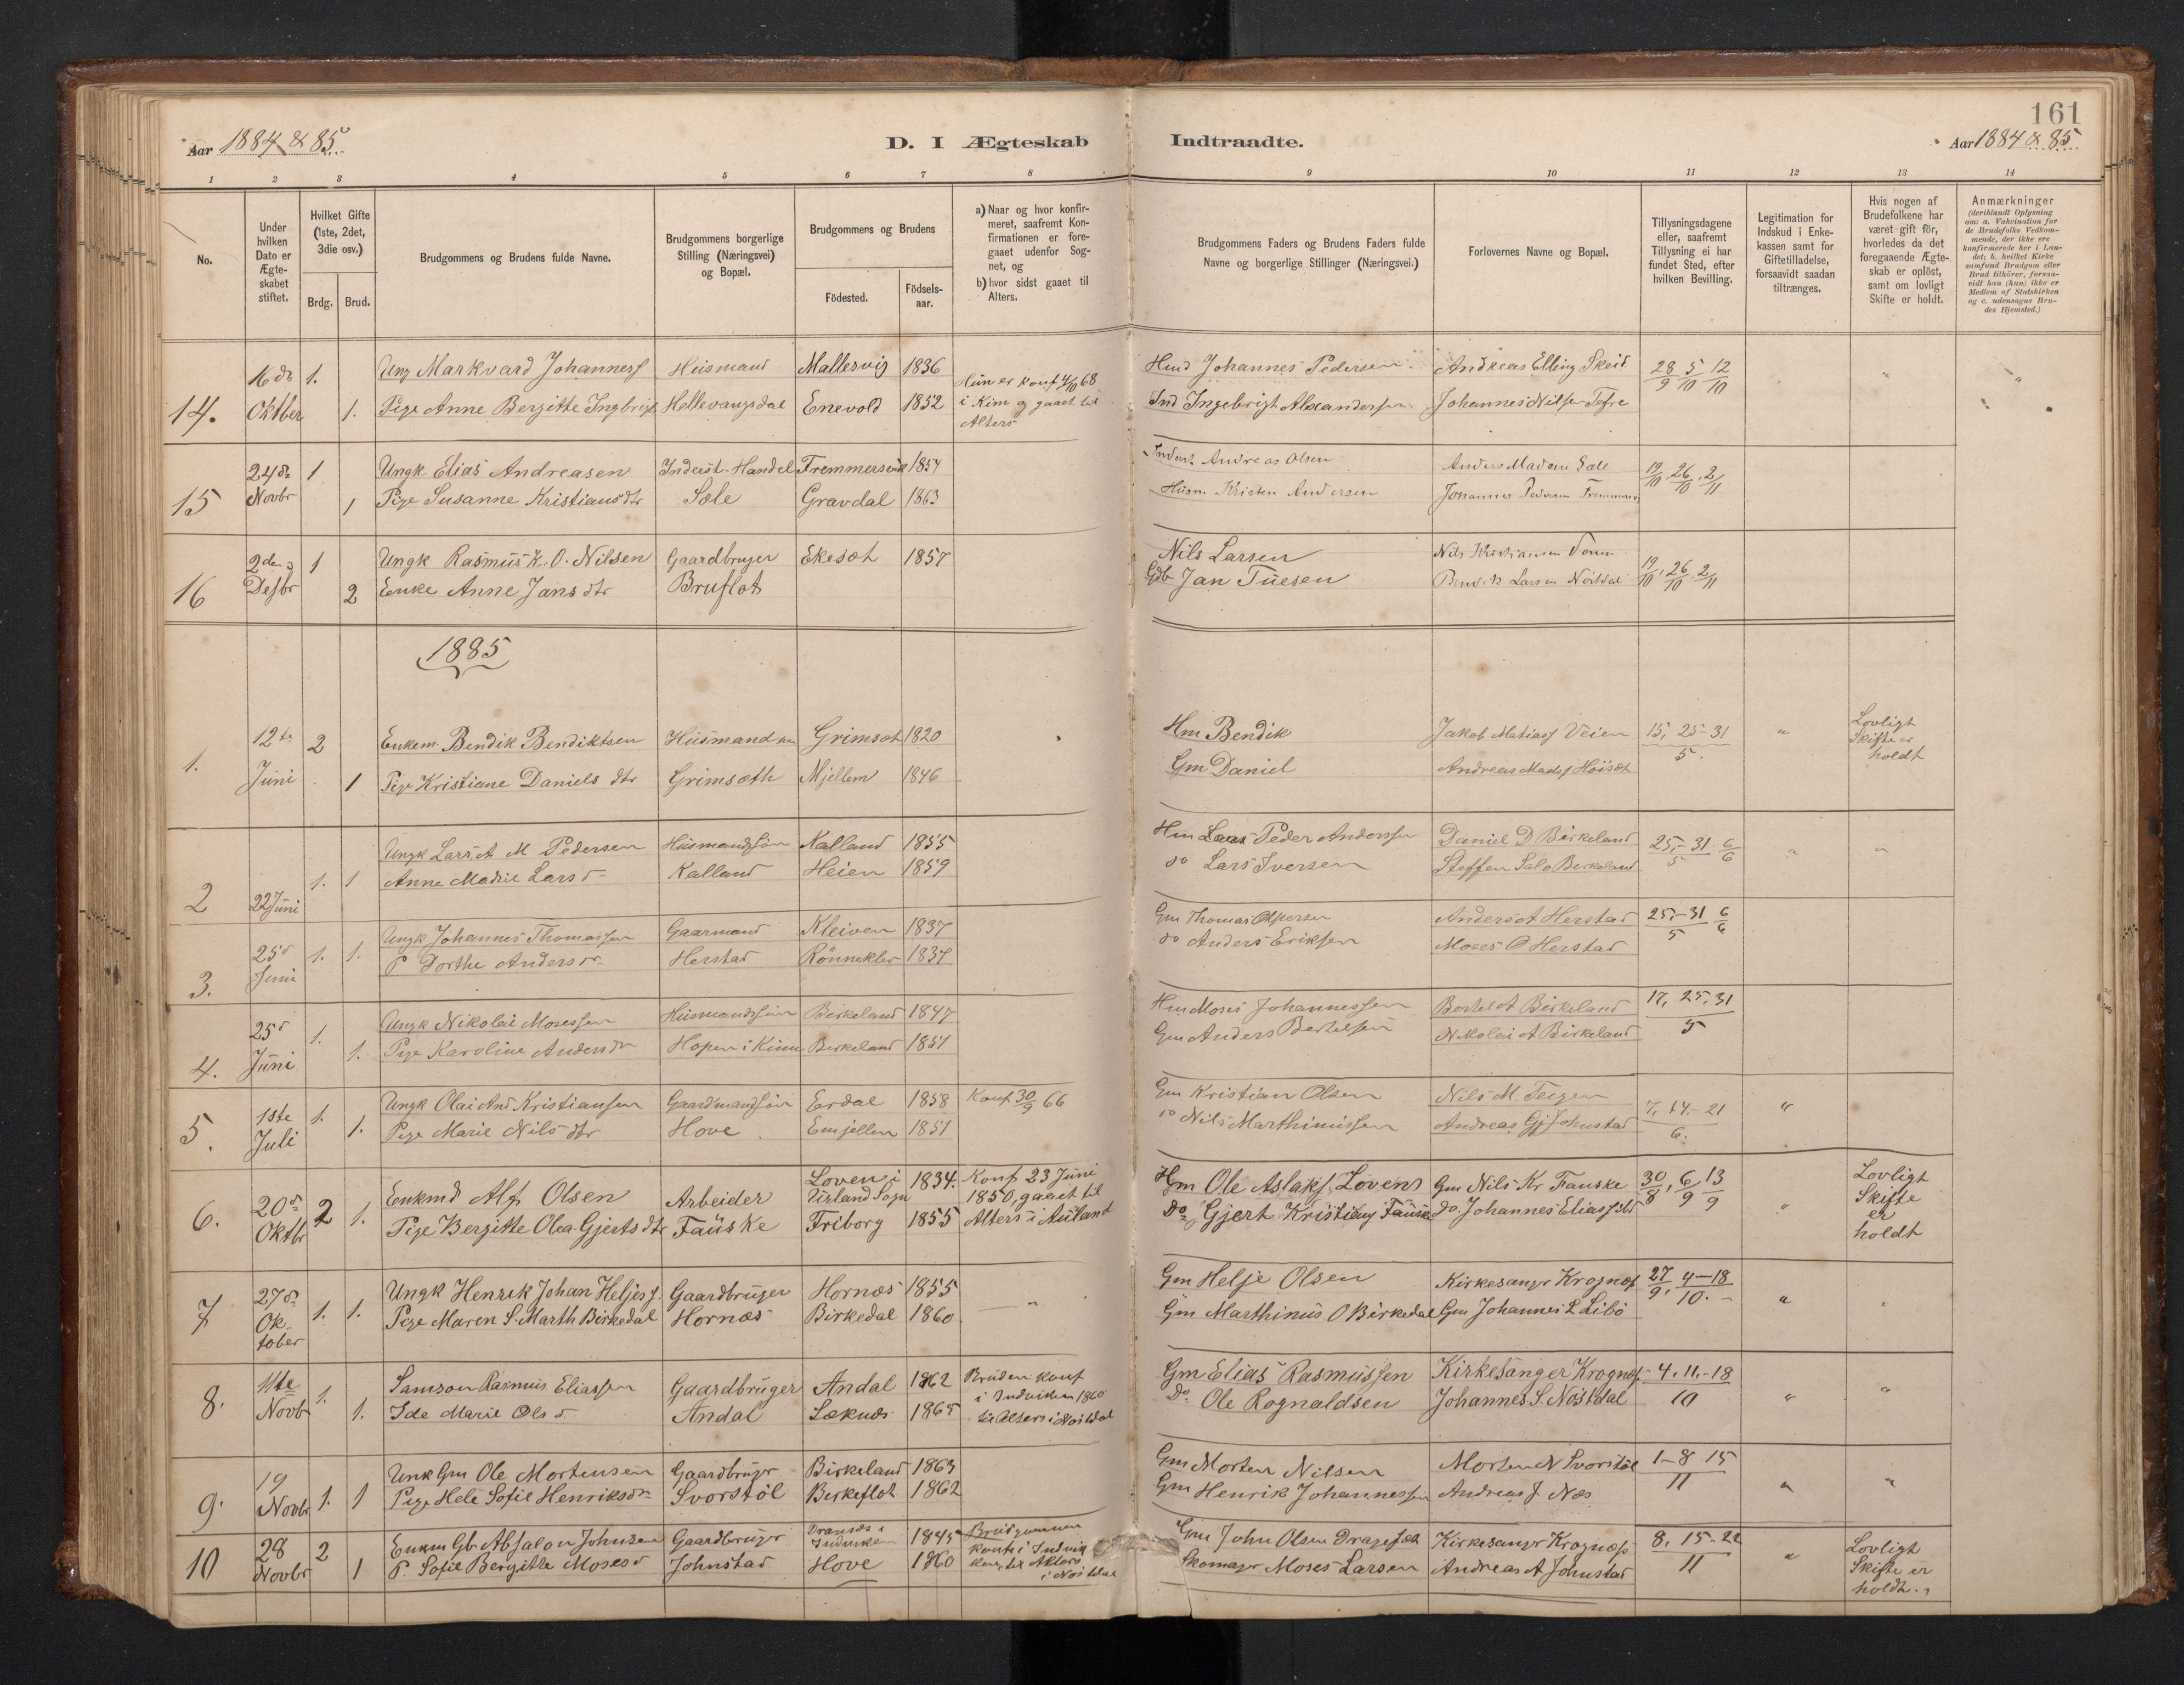 161
Aar 1884 & 85.
D. I Ægteskab Indtraadte.
Aar 1884 & 85.
1 2 3 4 5 6 7 8 9 10 11 12 13 14
No.
Under hvilken Dato er Ægteskabet stiftet.
Hvilket Gifte (1ste, 2det, 3die osv.)
Brdg. Brud.
Brudgommens og Brudens fulde Navne.
Brudgommens borgerlige Stilling (Næringsvei) og Bopæl.
Brudgommens og Brudens
Födested. Födselsaar.
a) Naar og hvor konfirmeret, saafremt Konfirmationen er foregaaet udenfor Sognet, og
b) hvor sidst gaaet til Alters.
Brudgommens Faders og Brudens Faders fulde Navne og borgerlige Stillinger (Næringsvei.)
Forlovernes Navne og Bopæl.
Tillysningsdagene eller, saafremt Tillysning ei har fundet Sted, efter hvilken Bevilling.
Legitimation for Indskud i Enkekassen samt for Giftetilladelse, forsaavidt saadan tiltrænges.
Hvis nogen af Brudefolkene har været gift för, hvorledes da det foregaaende Ægteskab er oplöst, samt om lovligt Skifte er holdt.
Anmærkninger
(deriblandt Oplysning om: a. Vakcination for de Brudefolks Vedkommende, der ikke ere konfirmerede her i Landet; b. hvilket Kirkesamfund Brudgom eller Brud tilhörer, forsaavidt han (hun) ikke er Medlem af Statskirken og c. udensogns Brudes Hjemsted.)
16 de 1. Ung Markvard Johannes Huismand Mallesvig 1836 Hun er konf 4/10 68 Johannes Pedersen Andreas Elling Skeid 28/9 5/10 12/10
14. Oktber 1. Pige Anne Bergitte Ingbrigt Hellevangsdal Enevold 1852 i Kin og gaaet til Alters Ind Ingebrigt Alexandersen Johannes Nilsen
24 de 1 Ungk Elias Andreasen Inderst Handel 1854 Inderst Andreas Olsen Anders 19/10 26/10 2/11
15 Novbr 1 Pige Susanne Kristiansdtr Sæle Gravdal 1863 Husm Kristen Andersen Johannes Pedersen
2den 1 Ungk Rasmus K. O. Nilsen Gaardbruger Ekesæt 1857 Nils Larsen Nils Kristiansen 19/10 26/10 2/11
16 Desbr 2 Enke Anne Jans dtr Bruflot Gdb Jan Tuesen Larsen Nöstdal
1885
12te 2 Enkem. Bendik Bendiktsen Husmand Grimsæt 1820 Hm Bendik Jakob Matias Veien 15, 25-31 " Lovligt Skifte er holdt
1. Juni 1 Pige Kristiane Daniels dtr Grimsæth Mjellem 1846 Gm Daniel Andreas Mads 5.
Ungk Lars A M Pedersen Husmandssön Kalland 1855 Hm Peder Anderssen Daniel D Birkeland 25-31/5 6/6 " "
2 22 Juni 1. 1 Anne Madrie Lars d Kalland Heien 1859 do Lars Iversen Steffen Salo Berkeland
Ungk Johannes Thomassen Gaarmand Kleiven 1837 Gm Thomas Anders A Herstad 25-31/5 6/6
3. 25d Juni 1. 1. P Dorthe Anders d Herstad 1837 do Anders Eriksen Moses O Herstad
Ungk Nikolai Mosessen Husmandssön Birkeland 1847 Hm Moses Johannessen Bertel A Birkeland 17, 25, 31
4. 25d Juni 1. 1. Pige Karoline Anders d Hopen i Kinn Berkeland 1851 Gm Anders Bertelsen Nikolai A Birkeland 5
1ste 1. Ungk Olai And Kristiansen Gaardmandssön Eerdal 1858 Konf 30/9 66 Gm Kristian Olsen Nils M Teigen 7, 14-21 "
5. Juli 1. Pige Marie Nils dtr Hove Emjellen 1851 do Nils Marthinussen Andreas Gj Johnstad 6.
6. 20d Oktbr 2 1. Enkmd Alf Olsen Arbeider Loven i Urland Sogn 1834. Konf 23 Juni 1850, gaaet til Alters i Auland Hm Ole Aslaks Loven Gm Nils Kr Fauske 30/8, 6/9 13/9 " Lovligt Skifte er holdt
Pige Bergitte Olea Gjerts dtr Fauske Friborg 1855 Do Gjert Kristians Fauske do. Johannes Elias
7 27d Oktober 1. 1. Ungk Henrik Johan Heljes. Gaardbruger Hornæs 1855 — " Gm Helje Olsen Kirkesangr Krognæs 27/9, 4-18/10. " "
Pige Maren S. Marth Birkedal Hornæs Birkedal 1860 Gm Marthinus O Birkedal Gm Johannes L Libö
8. 11te Novb 1. 1. Samson Rasmus Eliassen Gaardbruger Andal 1862 Bruden konf i Indviken 1860 til Alters i Nöstdal Gm Elias Rasmussen Kirkesanger Krognæs 4, 11,-18 " "
Ide Marie Ols d Andal 1865 Do Ole Rognaldsen Johannes S. Nöstdal 10
9. 19 Novbr 1. 1 Unk Gm Ole Mortensen Gaardbruger Birkeland 1863 Gm Morten Nilsen Morten N Svorstöl 1-8 15 " "
Pige Hele Sofie Henriksd Svorstöl Berkeflot 1862 Gm Henrik Johannessen Andreas J Næs 11
10 28 Novbr 2 1 Enkm Gb Absalon Johnsen Gaardbruger 1845 Brudgommen konf i Indvik til Alters i Nöstdal Gm John Olsen Dragesæt Kirkesangr Krognæs 8, 15-22 " Lovligt Skifte er holdt.
P. Sofie Bergitte Moses d Johnstad Hove 1860 Skomagr Moses Larsen Andreas A Johnstad 11